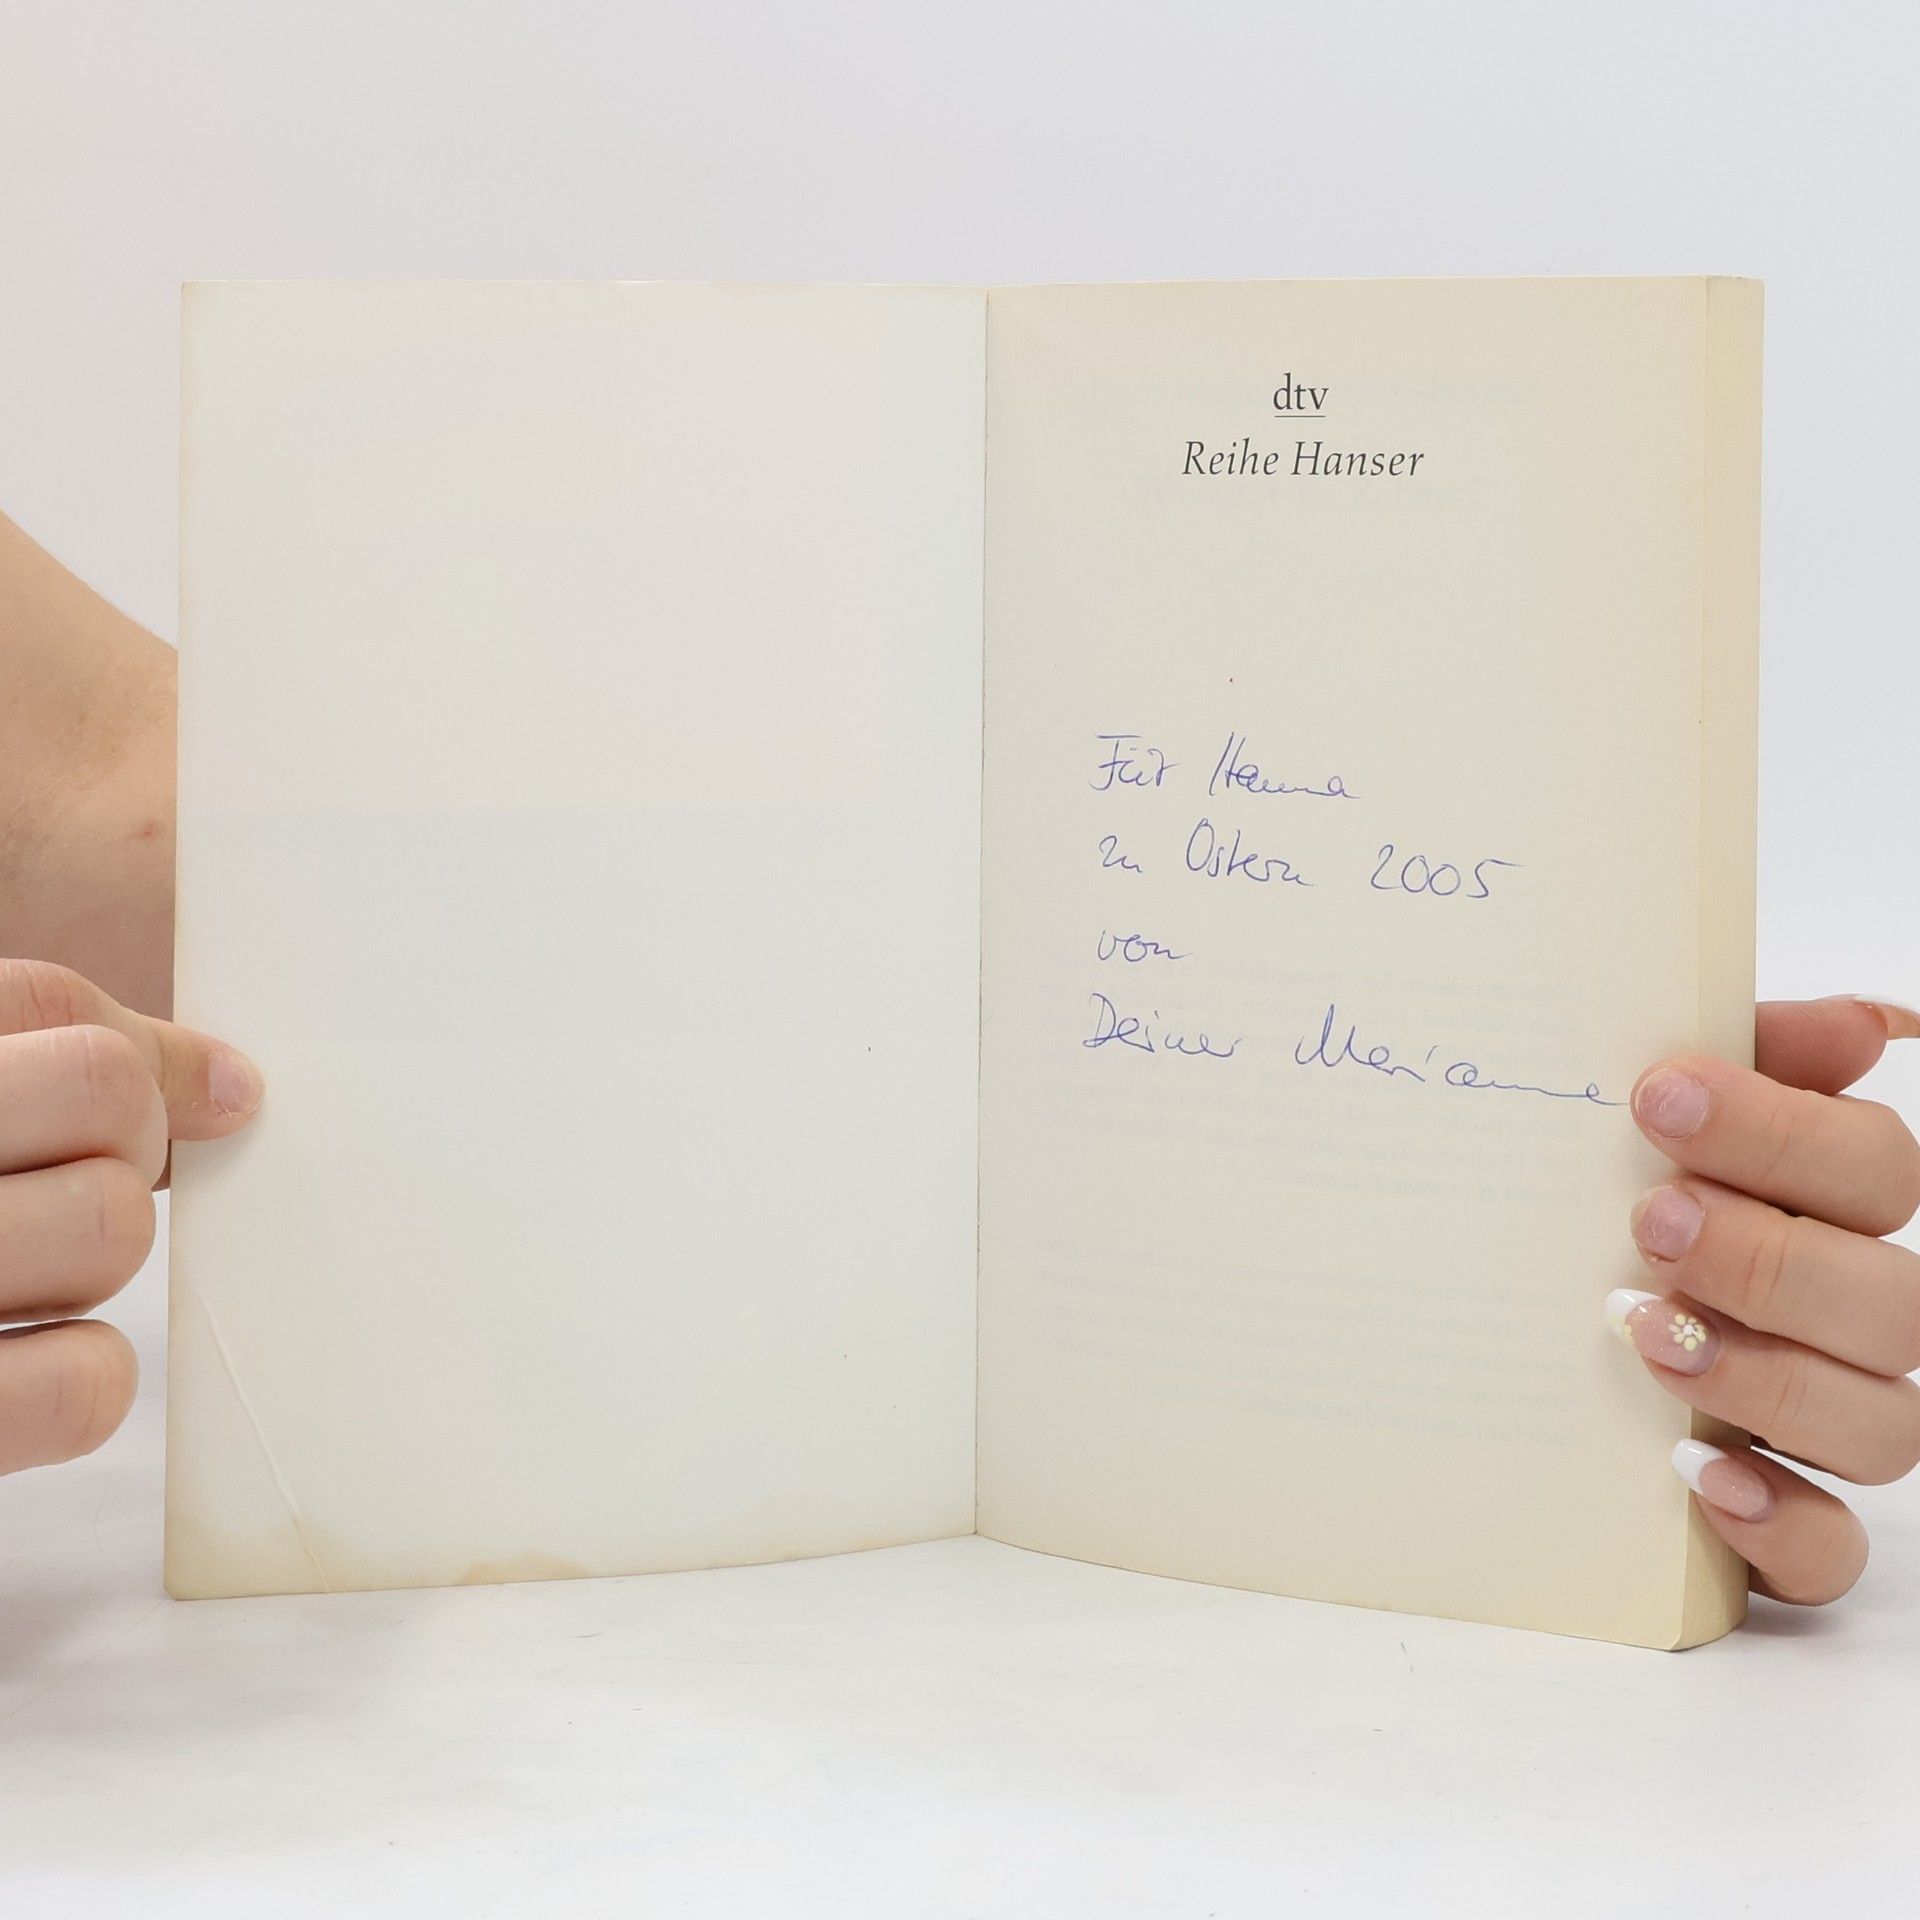 dtv
Reihe Hanser
Für Hanna
zu Ostern 2005
von
Deiner Marianne